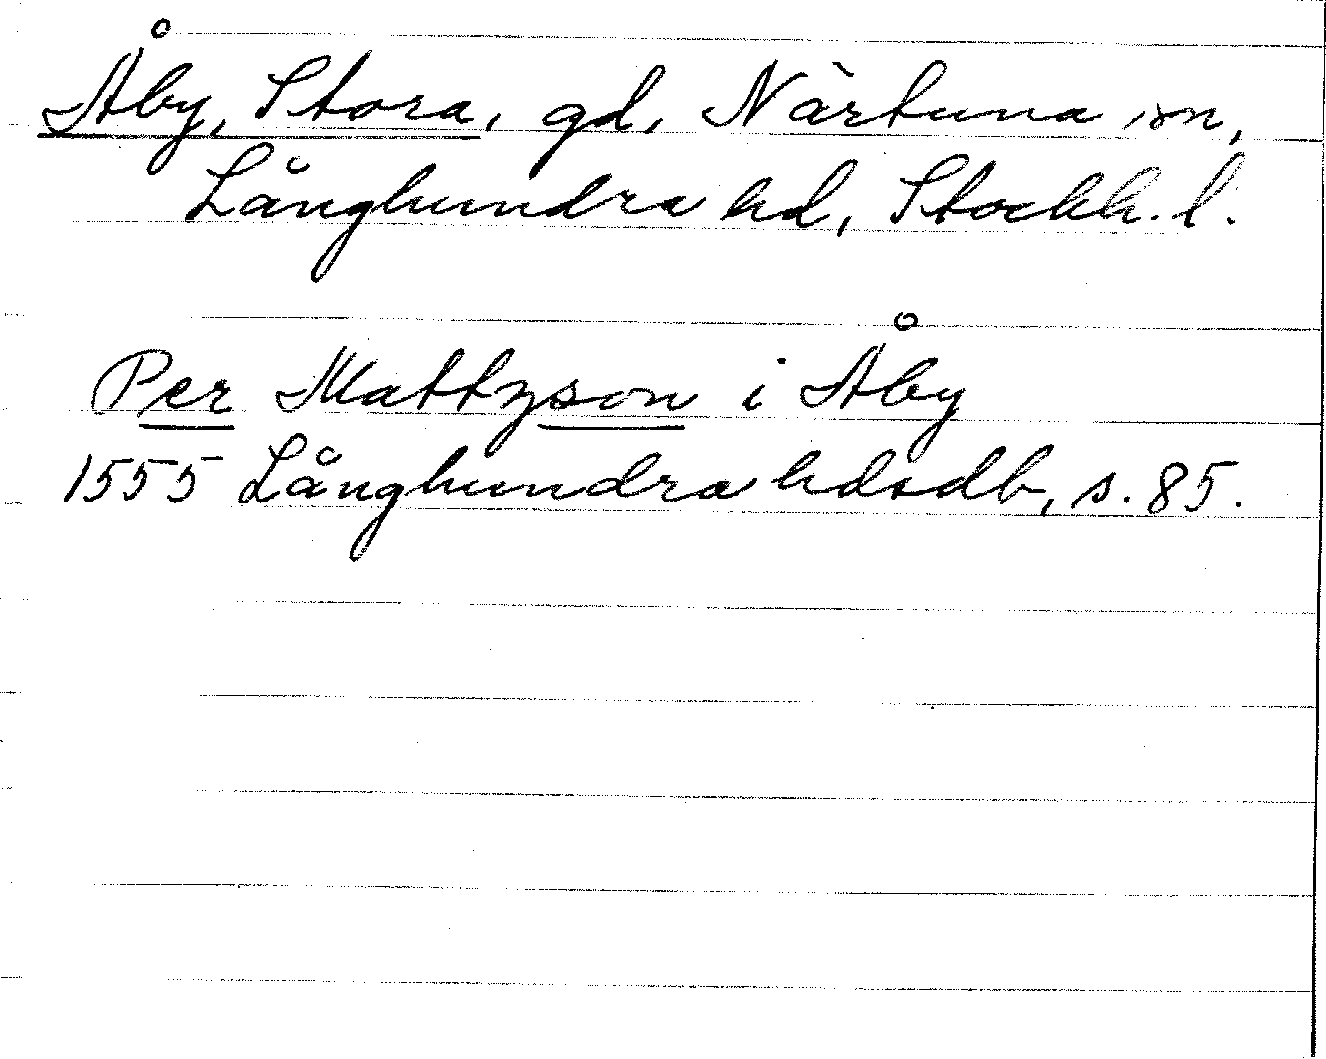 Åby, Stora, gd, Närtuna sn,
Långhundra hd, Stockh. l.
Per Mattzson i Åby
1555 Långhundra hdsdb, s. 85.